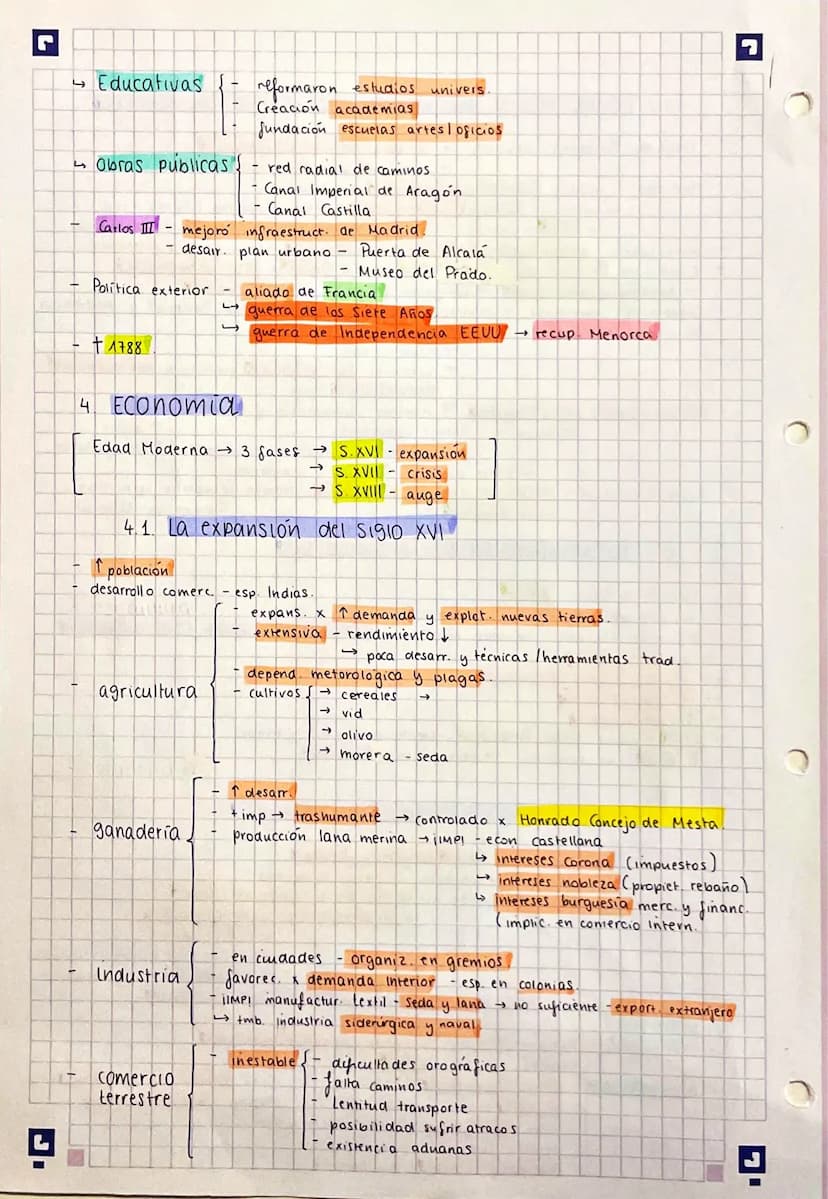 ↳ Educativas { - reformaron estudios univers.
- Creación academias
- fundación escuelas artes/oficios
↳ Obras públicas { - red radial de caminos
- Canal Imperial de Aragón
- Canal Castilla
- Carlos III - mejoró infraestruct. de Madrid.
- desarr. plan urbano - Puerta de Alcalá
- Museo del Prado.
- Política exterior - aliado de Francia
↳ guerra de los Siete Años.
↳ guerra de Independencia EEUU → recup. Menorca
- † 1788.
4. ECONOMÍA
[ Edad Moderna → 3 fases → S. XVI - expansión ]
→ S. XVII - crisis
→ S. XVIII - auge
4.1. La expansión del siglo XVI
- ↑ población
- desarrollo comerc. - esp. Indias.
- expans. x ↑ demanda y explot. nuevas tierras.
- extensiva - rendimiento ↓
↳ poca desarr. y técnicas/herramientas trad.
- depend. metorológica y plagas.
- agricultura { - cultivos { → cereales →
→ vid
→ olivo
→ morera - seda
- ↑ desarr.
- + imp → trashumante → controlado x Honrado Concejo de Mesta.
- ganadería { - producción lana merina → ¡IMP! - econ castellana
↳ intereses corona (impuestos)
↳ intereses nobleza (propiet. rebaño)
↳ intereses burguesía merc. y financ.
(implic. en comercio intern.
- en ciudades - organiz. en gremios
- industria { - favorec. x demanda interior - esp. en colonias.
- ¡IMP! manufactur. textil - seda y lana → no suficiente - export. extranjero
↳ tmb. industria siderúrgica y naval.
- comercio terrestre { - inestable { - dificultades orográficas
- falta caminos
- Lentitud transporte
- posibilidad sufrir atracos
- existencia aduanas